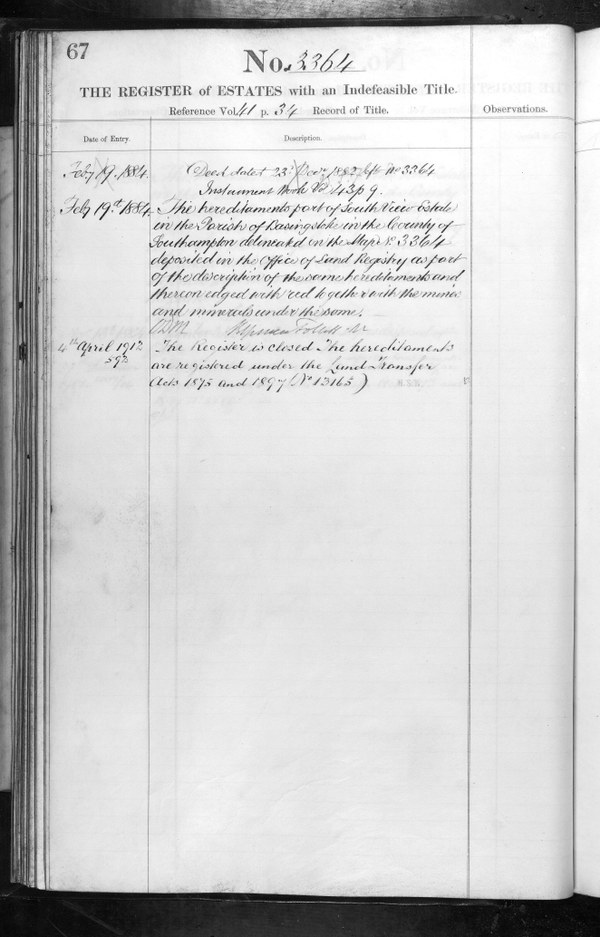 67
No. 3364
THE REGISTER of ESTATES with an Indefeasible Title.
Reference Vol. 41 p. 34 Record of Title.
Observations.
Date of Entry.
Description.
Feby 19. 1884
Deed dated 23rd Decr 1882 No 3364
Instrument Book Vol 43 p 9.
Feby 19th 1884.
The hereditaments part of South View Estate
in the Parish of Basingstoke in the County of
Southampton delineated on the Map No 3364
deposited in the Office of Land Registry as part
of the description of the same hereditaments and
thereon edged with red together with the mines
and minerals under the same.
4th April 1912
The Register is closed The hereditaments
are registered under the Land Transfer
Acts 1875 and 1897 (No 13165)